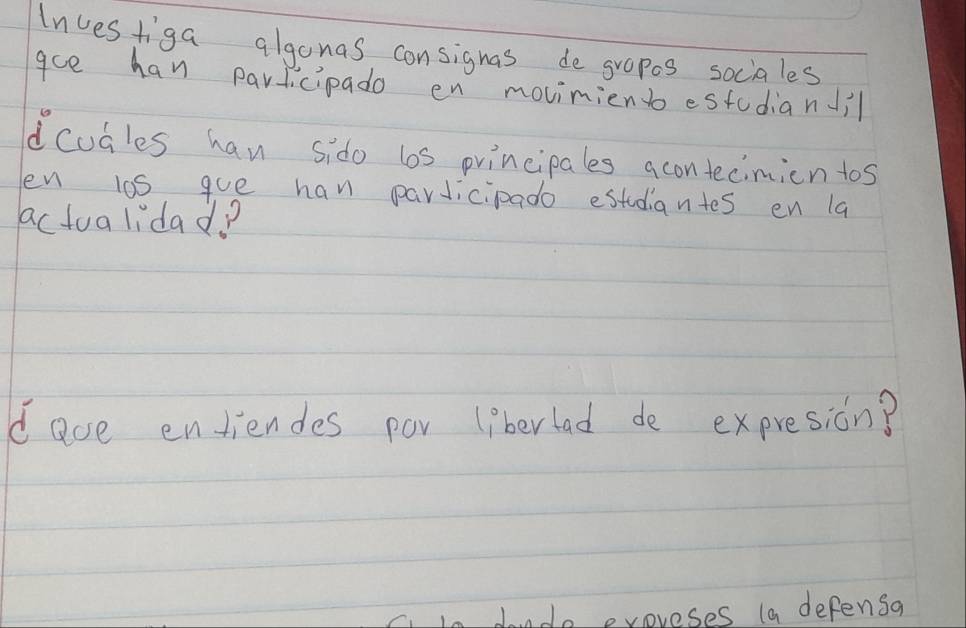 Investiga algunas consignas de grupos sociales
que han participado en movimiento estudiantil
¿cuáles han sido los principales acontecimientos
en los que han participado estudiantes en la
actualidad?
¿Que entiendes por libertad de expresión?
donde expreses la defensa